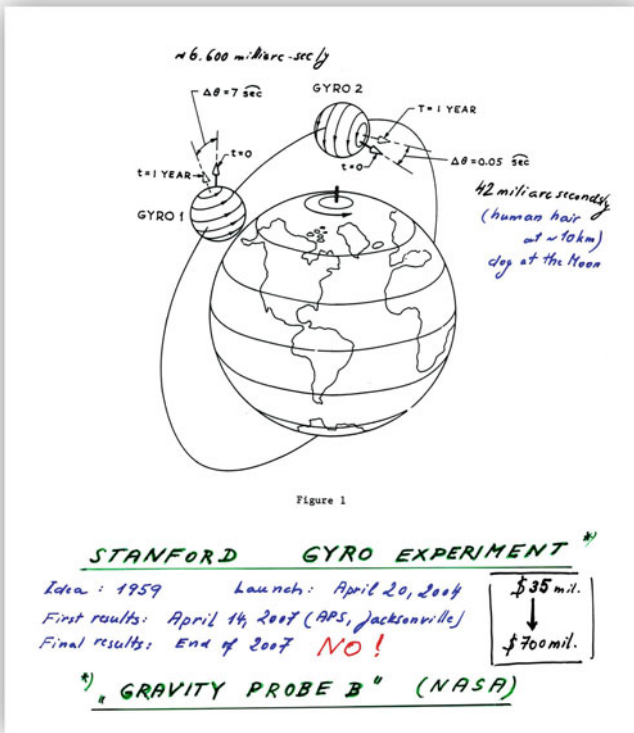 ~6.600 milliarc-sec/y
Δθ = 7 sec
GYRO 2
T = 1 YEAR
t=0
t=0
t = 1 YEAR
Δθ = 0.05 sec
GYRO 1
42 miliarcseconds/y
(human hair
at ~10km)
dog at the Moon
Figure 1
STANFORD GYRO EXPERIMENT *)
Idea : 1959 Launch: April 20, 2004
$35 mil.
First results: April 14, 2007 (APS, Jacksonville)
Final results: End of 2007 NO!
$700 mil.
*) „GRAVITY PROBE B" (NASA)